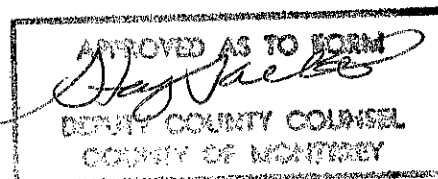 APPROVED AS TO FORM
DEPUTY COUNTY COUNSEL
COUNTY OF MONTEREY